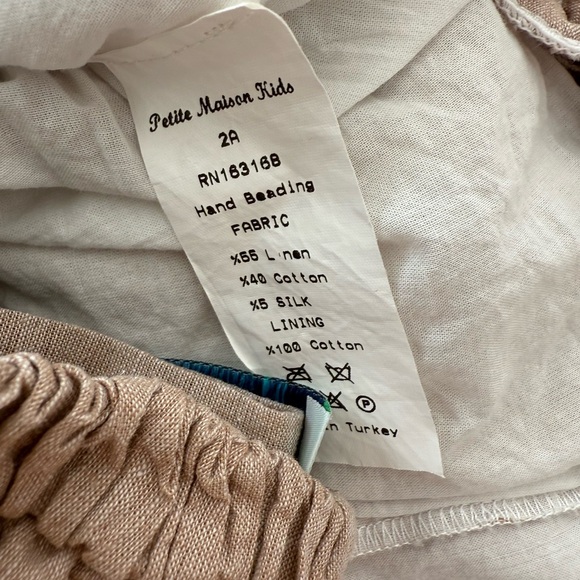 Petite Maison Kids
2A
RN163168
Hand Beading
FABRIC
%55 Linen
%40 Cotton
%5 SILK
LINING
%100 Cotton
P
in Turkey